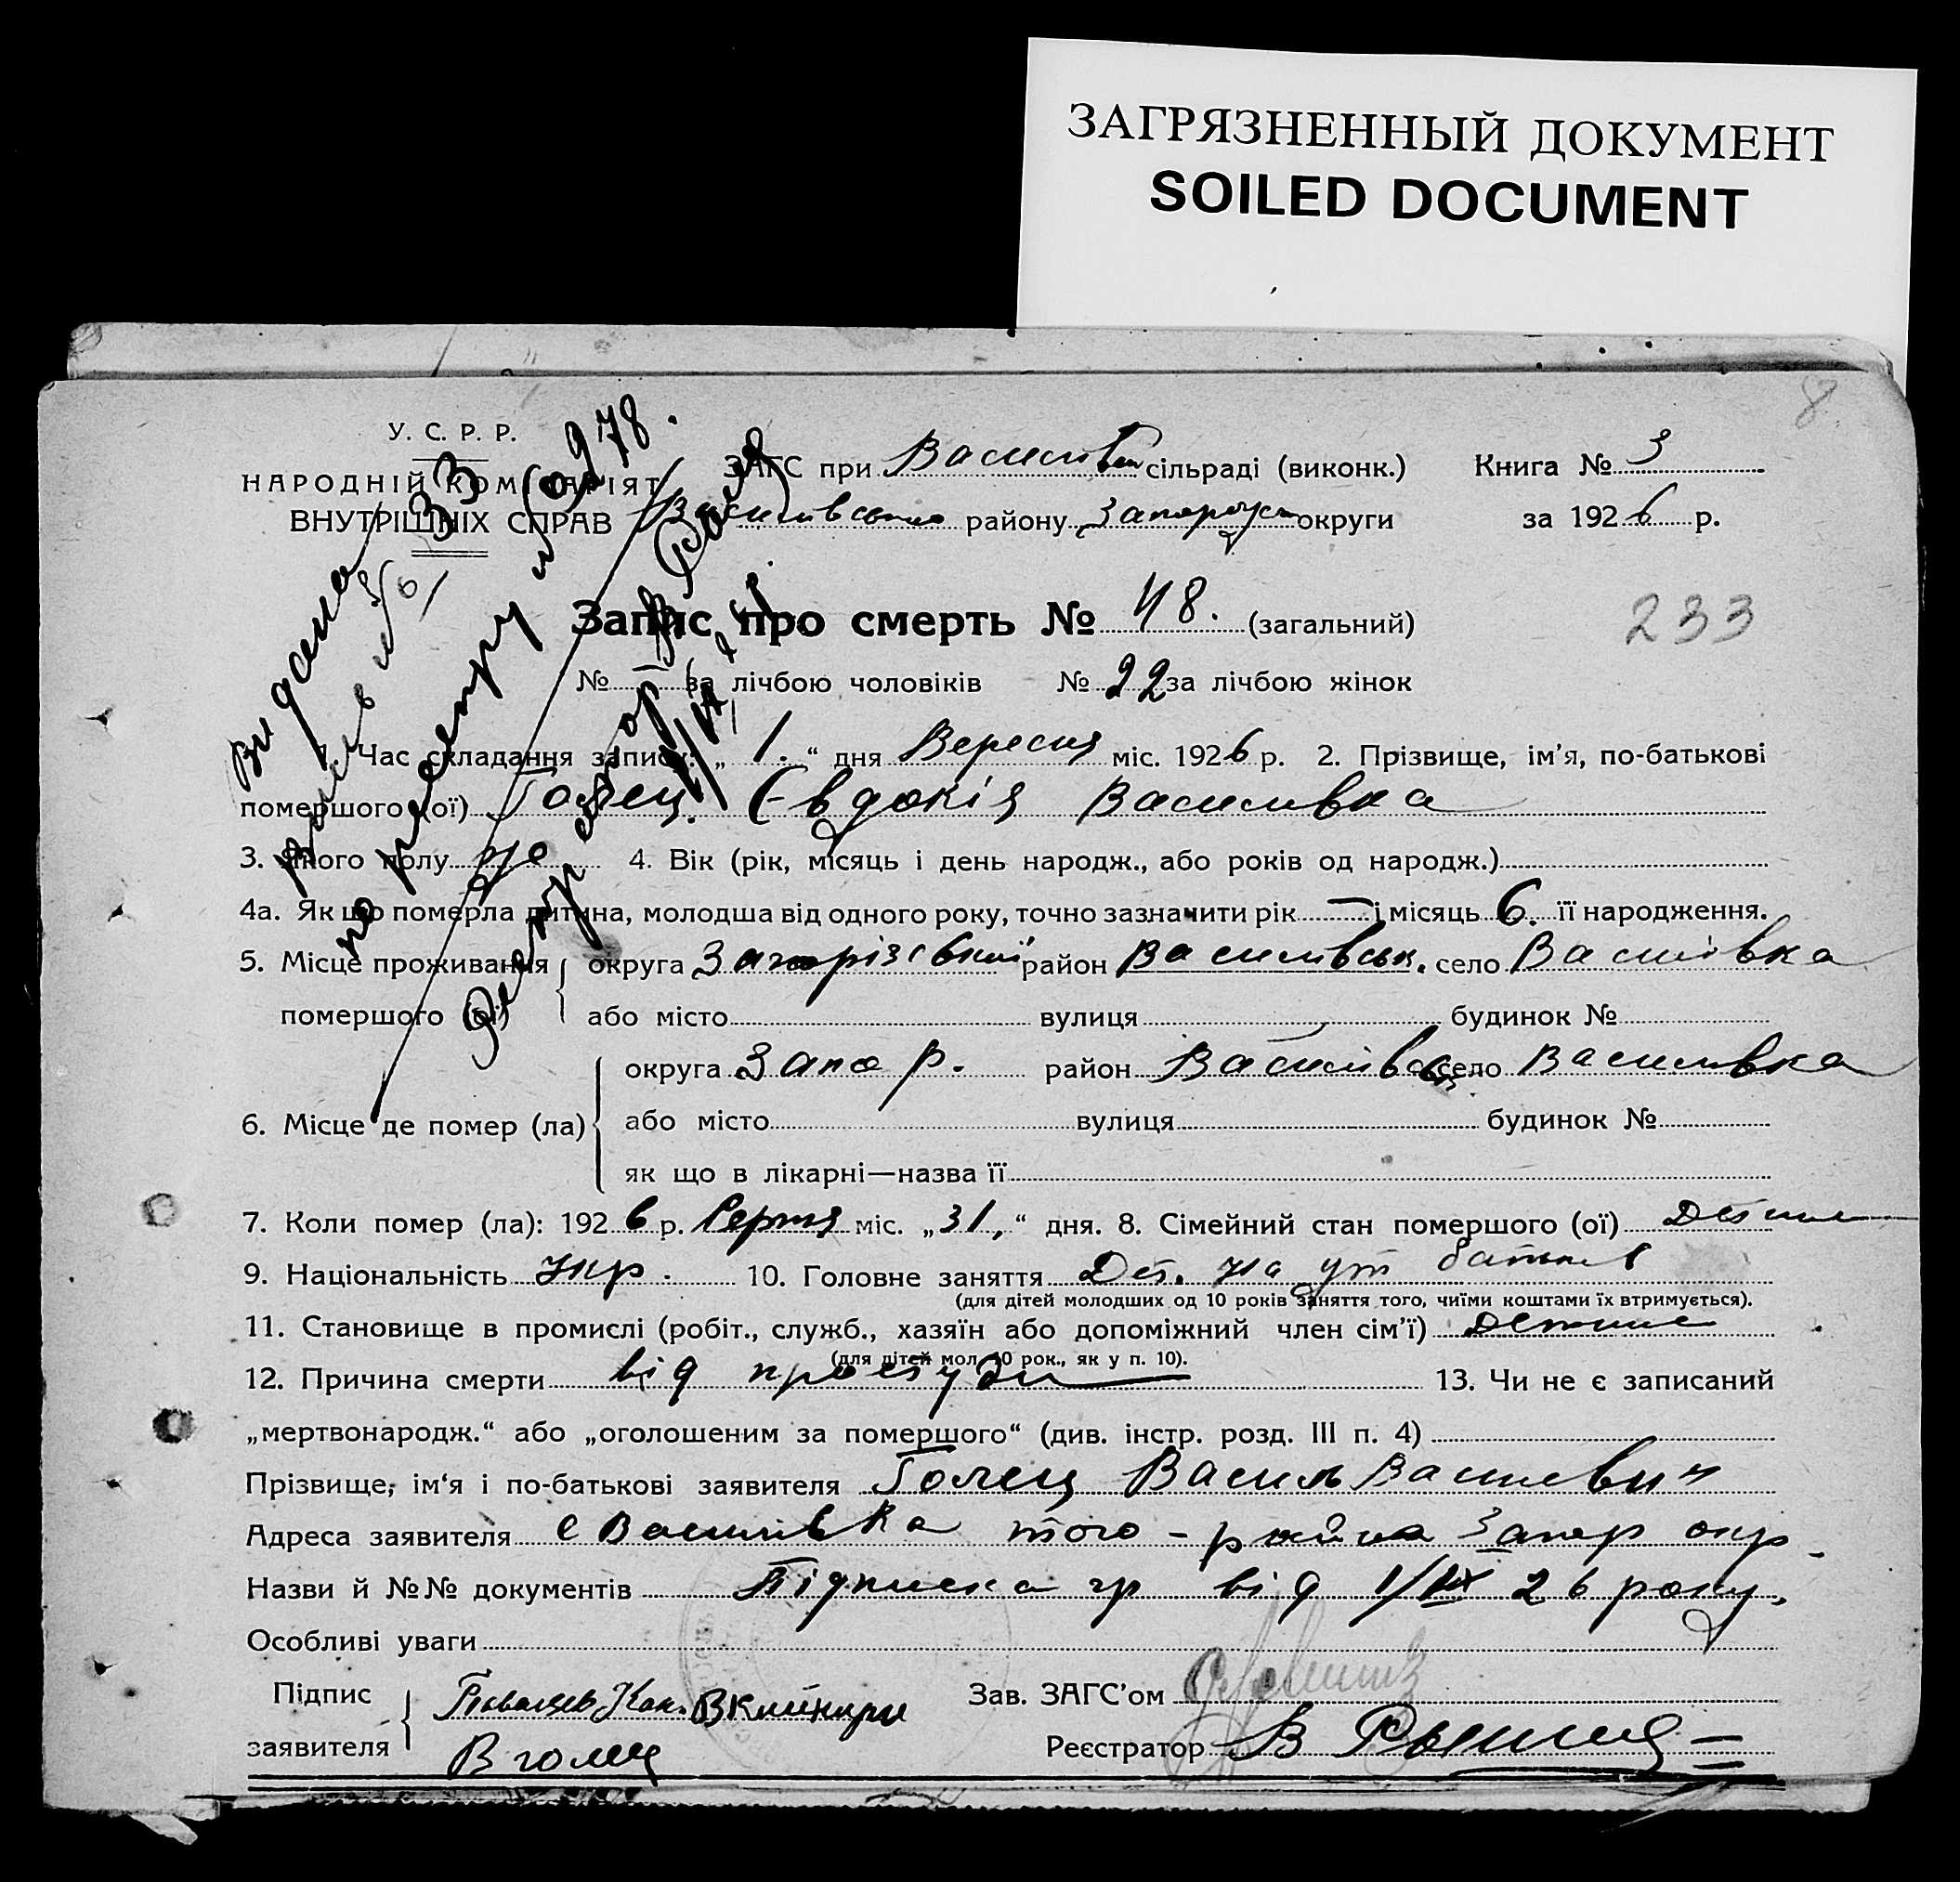 ЗАГРЯЗНЕННЫЙ ДОКУМЕНТ
SOILED DOCUMENT
8
У. С. Р. Р.
НАРОДНІЙ КОМІСАРІЯТ
ВНУТРІШНІХ СПРАВ
ЗАГС при Василівськ сільраді (виконк.) Книга № 3
Василівського району Запорузьк округи за 1926 р.
Видано
по реестру
Запис про смерть № 48. (загальний)
233
№ — за лічбою чоловіків № 22 за лічбою жінок
1. Час складання запису: „1.“ дня Вересня міс. 1926 р. 2. Прізвище, ім'я, по-батькові
помершого (ої) Голец. Євдокія Василивна
3. Якого полу 4. Вік (рік, місяць і день народж., або років од народж.)
4а. Як що померла дитина, молодша від одного року, точно зазначити рік — і місяць 6. її народження.
5. Місце проживання помершого (ої) округа Запорізський район Василівськ. село Василівка
або місто вулиця будинок №
6. Місце де помер (ла) округа Запор. район Василівськ село Василивка
або місто вулиця будинок №
як що в лікарні—назва її
7. Коли помер (ла): 1926 р. Серпня міс. „31,“ дня. 8. Сімейний стан помершого (ої)
9. Національність Укр. 10. Головне заняття Дет. на ут батьків
(для дітей молодших од 10 років заняття того, чиїми коштами їх втримується).
11. Становище в промислі (робіт., служб., хазяїн або допоміжний член сім'ї)
(для дітей мол. 10 рок., як у п. 10).
12. Причина смерти від простуди 13. Чи не є записаний
„мертвонародж.“ або „оголошеним за помершого“ (див. інстр. розд. III п. 4)
Прізвище, ім'я і по-батькові заявителя Голец Василь Василевич
Адреса заявителя с Василівка того-района Запор окр
Назви й №№ документів Підписка гр від 1/IX 26 року.
Особливі уваги
Підпис заявителя
В голец
Зав. ЗАГС'ом
Реєстратор В